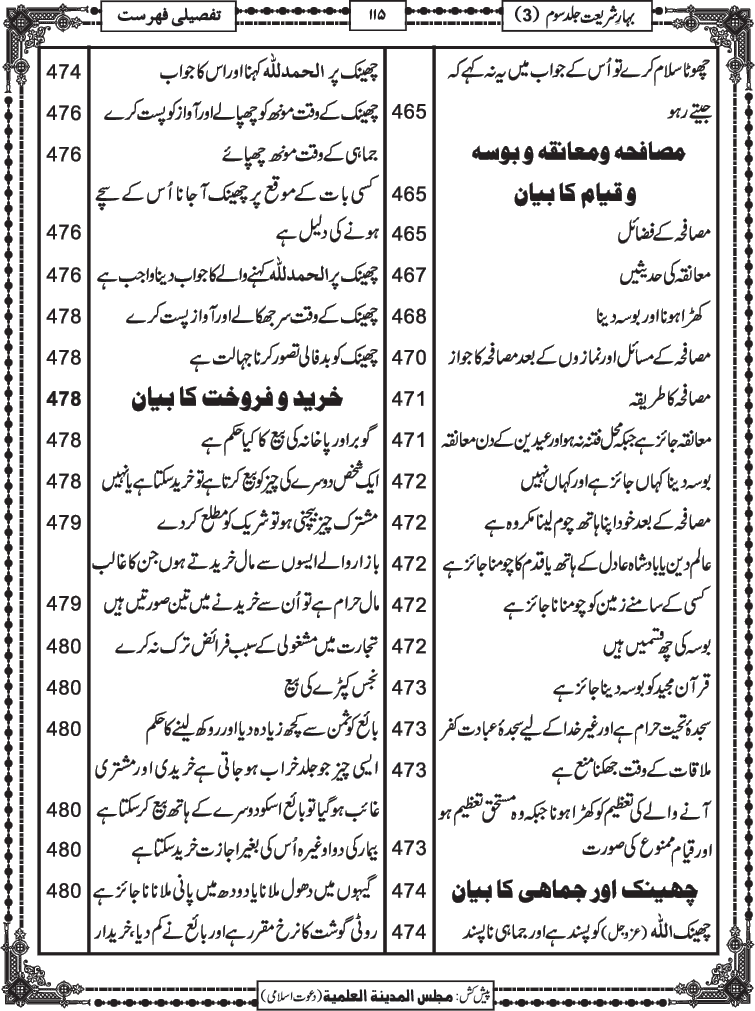 بہارِ شریعت جلد سوم (3)
۱۱۵
تفصیلی فہرست
چھوٹا سلام کرے تو اُس کے جواب میں یہ نہ کہے کہ
جیتے رہو 465
مصافحہ و معانقہ و بوسہ
و قیام کا بیان 465
مصافحہ کے فضائل 465
معانقہ کی حدیثیں 467
کھڑا ہونا اور بوسہ دینا 468
مصافحہ کے مسائل اور نمازوں کے بعد مصافحہ کا جواز 470
مصافحہ کا طریقہ 471
معانقہ جائز ہے جبکہ محل فتنہ نہ ہو اور عیدین کے دن معانقہ 471
بوسہ دینا کہاں جائز ہے اور کہاں نہیں 472
مصافحہ کے بعد خود اپنا ہاتھ چوم لینا مکروہ ہے 472
عالم دین یا بادشاہ عادل کے ہاتھ یا قدم کا چومنا جائز ہے 472
کسی کے سامنے زمین کو چومنا ناجائز ہے 472
بوسہ کی چھ قسمیں ہیں 472
قرآن مجید کو بوسہ دینا جائز ہے 473
سجدۂ تحیت حرام ہے اور غیر خدا کے لیے سجدۂ عبادت کفر 473
ملاقات کے وقت جھکنا منع ہے 473
آنے والے کی تعظیم کو کھڑا ہونا جبکہ وہ مستحق تعظیم ہو
اور قیام ممنوع کی صورت 473
چھینک اور جماہی کا بیان 474
چھینک اللہ (عزوجل) کو پسند ہے اور جماہی ناپسند 474
چھینک پر الحمدللہ کہنا اور اس کا جواب 474
چھینک کے وقت مونھ کو چھپالے اور آواز کو پست کرے 476
جماہی کے وقت مونھ چھپائے 476
کسی بات کے موقع پر چھینک آجانا اُس کے سچے
ہونے کی دلیل ہے 476
چھینک پر الحمدللہ کہنے والے کا جواب دینا واجب ہے 476
چھینک کے وقت سر جھکالے اور آواز پست کرے 478
چھینک کو بدفالی تصور کرنا جہالت ہے 478
خرید و فروخت کا بیان 478
گوبر اور پاخانہ کی بیع کا کیا حکم ہے 478
ایک شخص دوسرے کی چیز کو بیع کرتا ہے تو خرید سکتا ہے یا نہیں 478
مشترک چیز بیچنی ہو تو شریک کو مطلع کردے 479
بازار والے ایسوں سے مال خریدتے ہوں جن کا غالب
مال حرام ہے تو اُن سے خریدنے میں تین صورتیں ہیں 479
تجارت میں مشغولی کے سبب فرائض ترک نہ کرے 480
نجس کپڑے کی بیع 480
بائع کو ثمن سے کچھ زیادہ دیا اور روکھ لینے کا حکم 480
ایسی چیز جو جلد خراب ہو جاتی ہے خریدی اور مشتری
غائب ہوگیا تو بائع اسکو دوسرے کے ہاتھ بیع کرسکتا ہے 480
بیمار کی دوا وغیرہ اُس کی بغیر اجازت خرید سکتا ہے 480
گیہوں میں دھول ملانا یا دودھ میں پانی ملانا ناجائز ہے 480
روٹی گوشت کا نرخ مقرر ہے اور بائع نے کم دیا، خریدار
پیش کش: مجلس المدینۃ العلمیۃ (دعوت اسلامی)